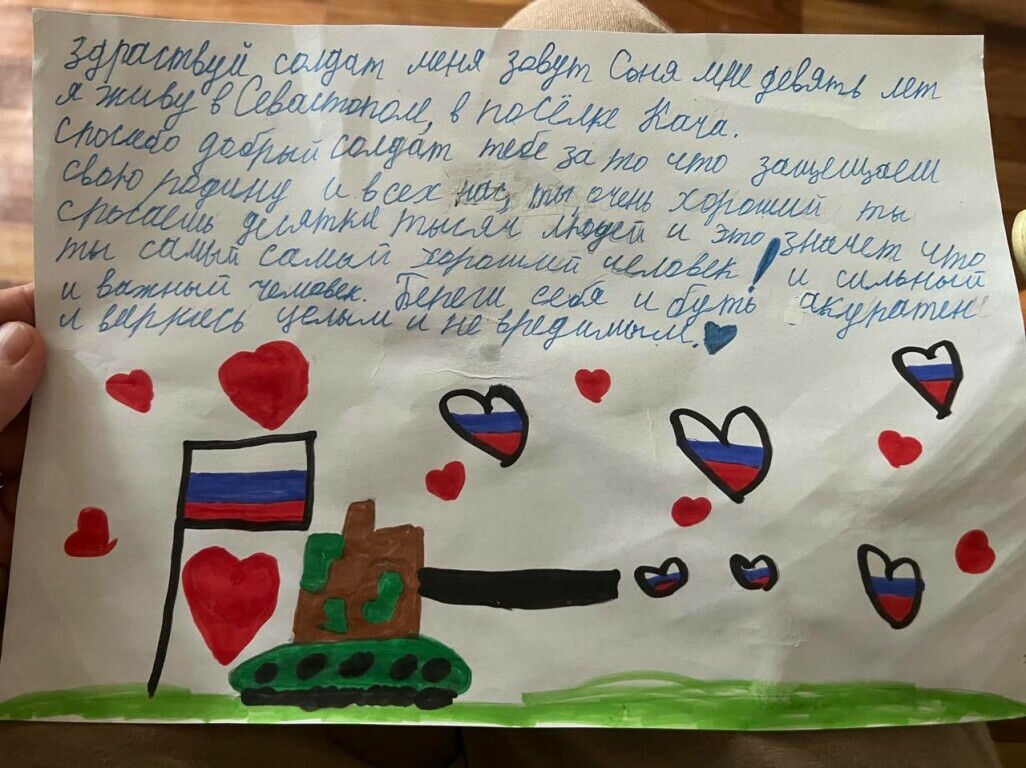 Здраствуй солдат меня зовут Соня мне девять лет
я живу в Севастополе, в посёлке Кача.
спосибо добрый солдат тебе за то что защещаем
свою родину и всех нас, ты очень хороший ты
спосаешь десятки тысяч людей и это значет что
ты самый самый хороший человек! и сильный
и важный человек. Береги себя и буть акуратен
и вернись целым и не вредимым.